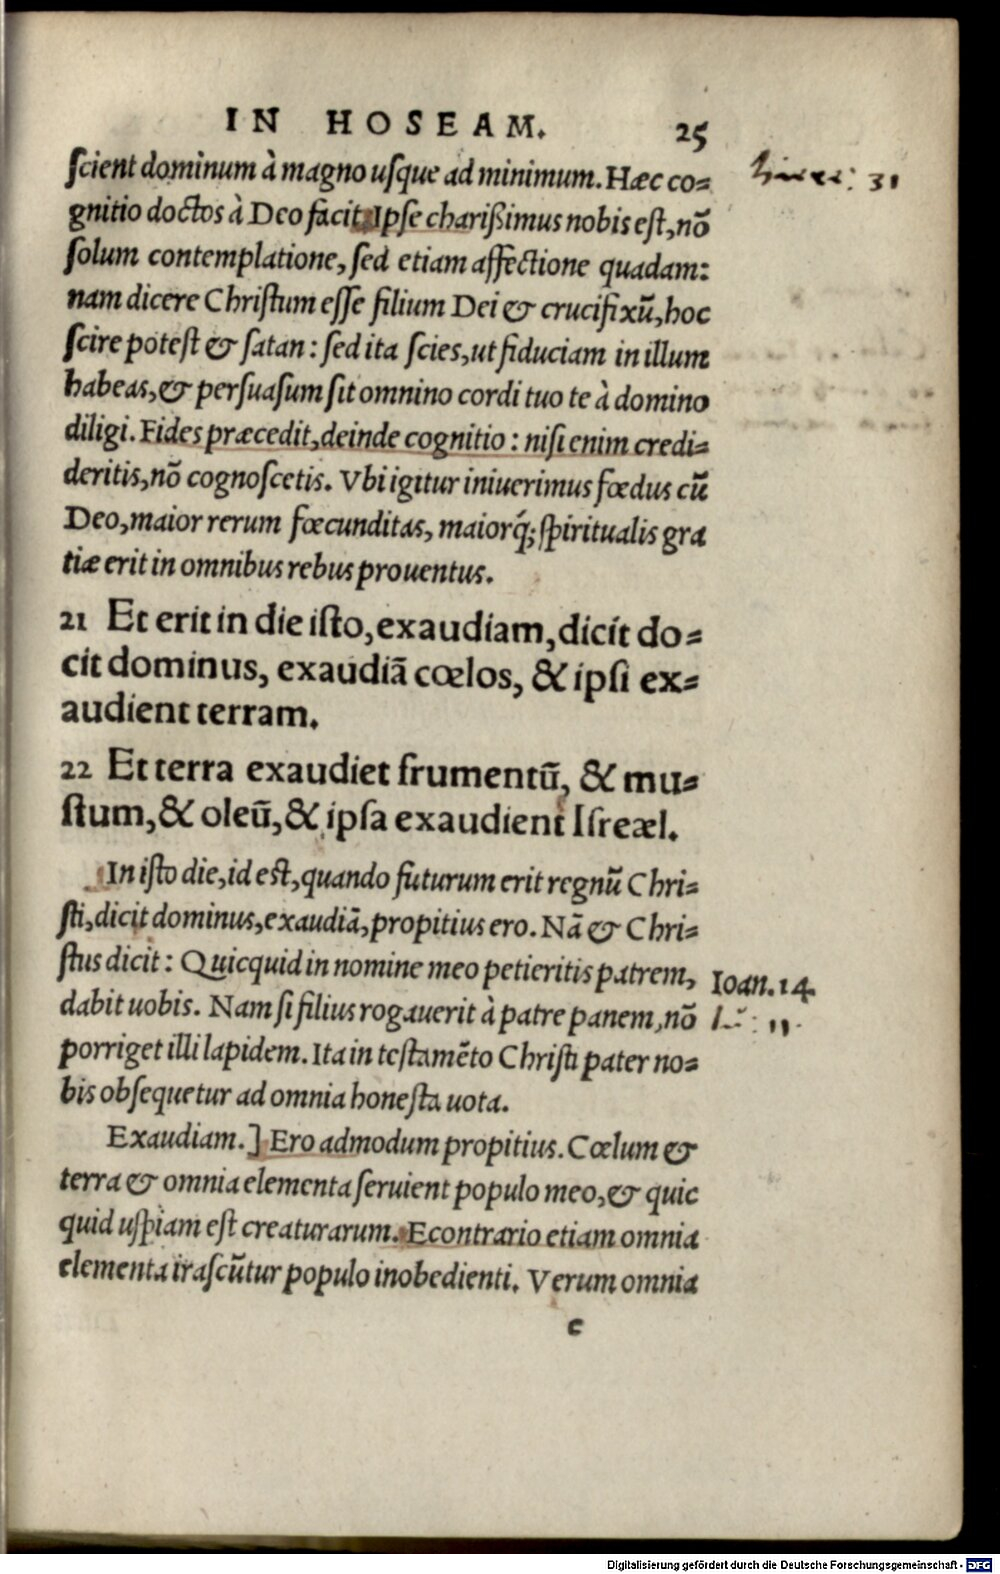 IN HOSEAM. 25
ſcient dominum à magno uſque ad minimum. Hæc co=
gnitio doctos à Deo facit. Ipſe charißimus nobis eſt, nõ
ſolum contemplatione, ſed etiam affectione quadam:
nam dicere Chriſtum eſſe filium Dei & crucifixũ, hoc
ſcire poteſt & ſatan: ſed ita ſcies, ut fiduciam in illum
habeas, & perſuaſum ſit omnino cordi tuo te à domino
diligi. Fides præcedit, deinde cognitio: niſi enim credi=
deritis, nõ cognoſcetis. Vbi igitur iniuerimus fœdus cũ
Deo, maior rerum fœcunditas, maiorq́; ſpiritualis gra
tiæ erit in omnibus rebus prouentus.
31
21 Et erit in die iſto, exaudiam, dicit do=
cit dominus, exaudiã cœlos, & ipſi ex=
audient terram.
22 Et terra exaudiet frumentũ, & mu=
ſtum, & oleũ, & ipſa exaudient Iſreæl.
In iſto die, id eſt, quando futurum erit regnũ Chri=
ſti, dicit dominus, exaudiã, propitius ero. Nã & Chri=
ſtus dicit: Quicquid in nomine meo petieritis patrem,
Ioan. 14
dabit uobis. Nam ſi filius rogauerit à patre panem, nõ
11.
porriget illi lapidem. Ita in teſtamẽto Chriſti pater no=
bis obſequetur ad omnia honeſta uota.
Exaudiam.] Ero admodum propitius. Cœlum &
terra & omnia elementa ſeruient populo meo, & quic
quid uſpiam eſt creaturarum. Econtrario etiam omnia
elementa iraſcũtur populo inobedienti. Verum omnia
c
Digitalisierung gefördert durch die Deutsche Forschungsgemeinschaft - DFG